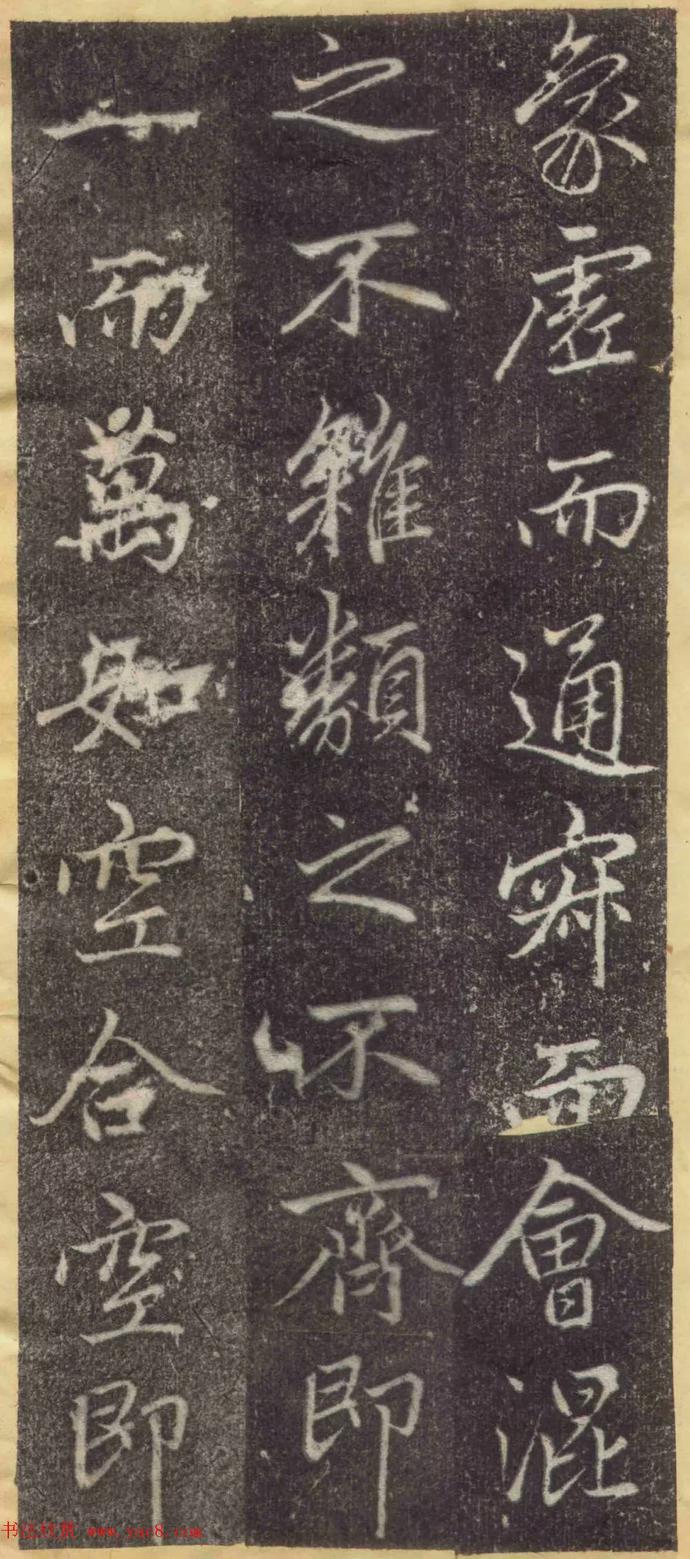 象虛而通寂而會混
之不雜類之不齊即
一而萬如空合空即
www.yac8.com